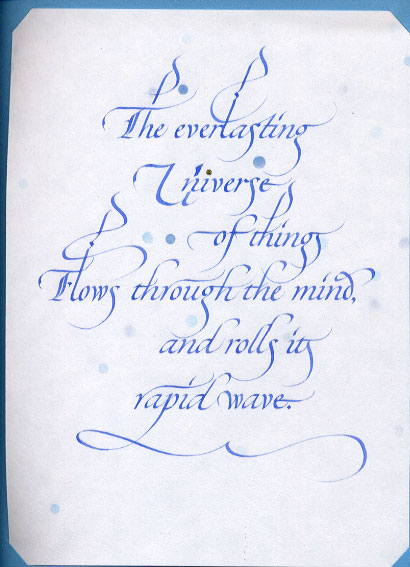 The everlasting
Universe
of things
Flows through the mind,
and rolls its
rapid wave.